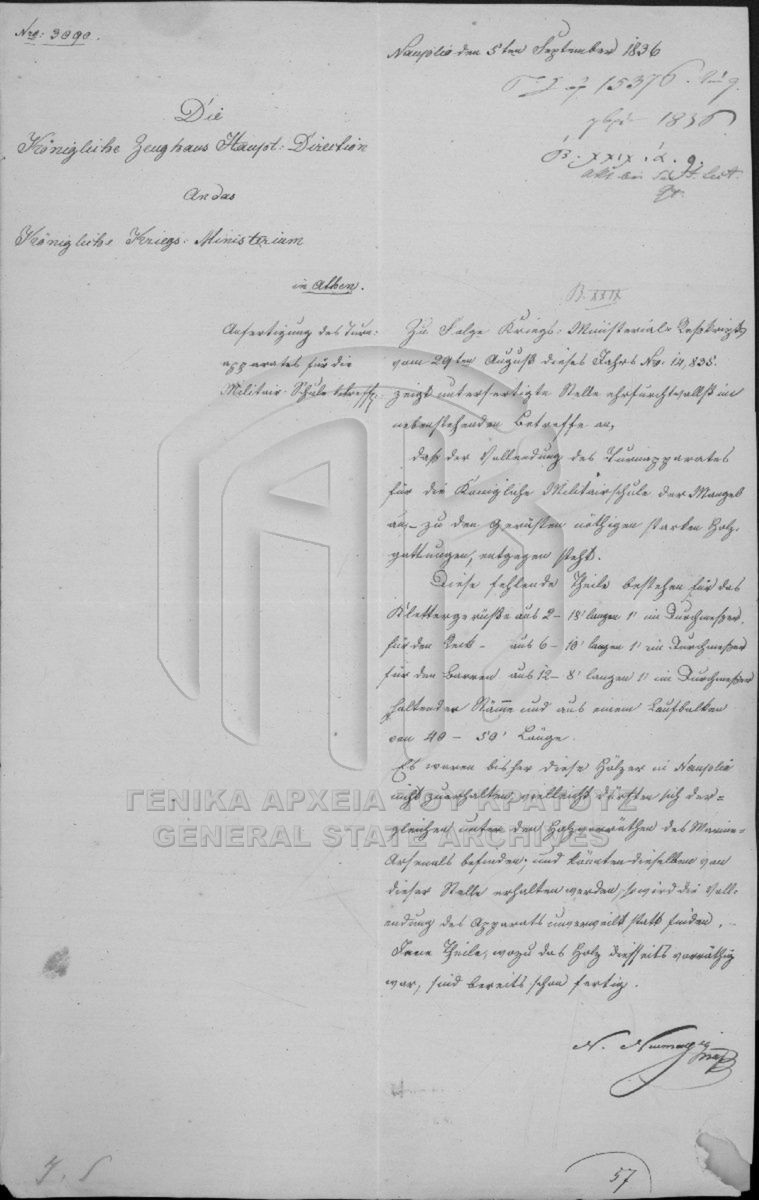 Nro: 3090.
Nauplia den 5ten September 1836
15376
1836
B. XXIX. α. 9.
Die
Königliche Zeughaus Haupt-Direction
An das
Königliche Kriegs-Ministerium
in Athen.
B. XXIX
Anfertigung des Turn-
apparates für die
Militair-Schule betreff.
Zu Folge Kriegs-Ministerial-Reskripts
vom 29ten August dieses Jahrs No. 14,835.
zeigt unterfertigte Stelle ehrfurchtvollst im
nebenstehenden Betreffe an,
daß der Vollendung des Turnapparates
für die Königliche Militairschule der Mangel
an - zu den Gerüsten nöthigen starken Holz-
gattungen, entgegen steht.
Diese fehlende Theile bestehen für das
Klettergerüste aus 2 - 18' langen 1' im Durchmeßer,
für den Reck - aus 6 - 10' langen 1' im Durchmeßer
für den Barren aus 12 - 8' langen 1' im Durchmeßer
haltender Stämme und aus einem Laufbalken
von 40 - 50' Länge.
Es waren bisher diese Hölzer in Nauplia
nicht zu erhalten, vielleicht dürften sich der-
gleichen unter den Holzvorräthen des Marine-
Arsenals befinden; und könnten dieselben von
dieser Stelle erhalten werden, so wird die Voll-
endung des Apparats unverweilt statt finden.
Jene Theile, wozu das Holz diesseits vorräthig
war, sind bereits schon fertig.
57
ΓΕΝΙΚΑ ΑΡΧΕΙΑ ΤΟΥ ΚΡΑΤΟΥΣ
GENERAL STATE ARCHIVES